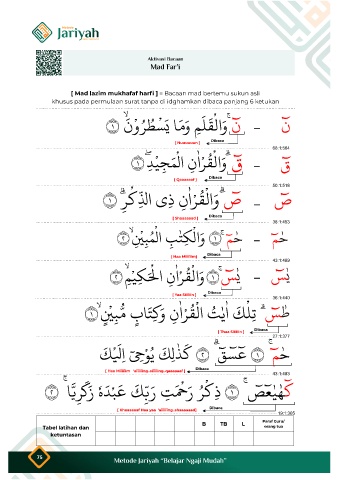 Metode
Jariyah
Aktivasi Bacaan
Mad Far'i
[ Mad lazim mukhafaf harfi ] = Bacaan mad bertemu sukun asli
khusus pada permulaan surat tanpa di idghamkan dibaca panjang 6 ketukan
نٓ – نٓ ۚ وَالْقَلَمِ وَمَا يَسْطُرُوْنَۙ ١
[ Nuuuuuun ] Dibaca
68:1:564
قٓ – قٓ ۗ وَالْقُرْاٰنِ الْمَجِيْدِۖ ١
[ Qaaaaaaf ] Dibaca
50:1:518
صٓ – صٓ ۗ وَالْقُرْاٰنِ ذِى الذِّكْرِۗ ١
[ Shaaaaaad ] Dibaca
38:1:453
حٰمٓ – حٰمٓ ۚ ١ وَالْكِتٰبِ الْمُبِيْنِۙ ٢
[ Haa Miiiiiim ] Dibaca
43:1:489
يٰسٓ – يٰسٓ ۚ ١ وَالْقُرْاٰنِ الْحَكِيْمِۙ ٢
[ Yaa Siiiiin ] Dibaca
36:1:440
طٰسٓ ۚ تِلْكَ اٰيٰتُ الْقُرْاٰنِ وَكِتَابٍ مُّبِيْنٍۙ ١
[ Thaa Siiiiin ] Dibaca
27:1:377
حٰمٓ ۚ ١ عٓسٓقٓ ۗ ٢ كَذٰلِكَ يُوْحِيْٓ اِلَيْكَ
Dibaca
42:1:483
كٓهٰيٰعٓصٓ ۚ ١ ذِكْرُ رَحْمَتِ رَبِّكَ عَبْدَهٗ زَكَرِيَّا ۚ ٢
Dibaca
19:1:305
Tabel latihan dan
ketuntasan
B TB L Paraf Guru/
orang tua
75
Metode Jariyah "Belajar Ngaji Mudah"